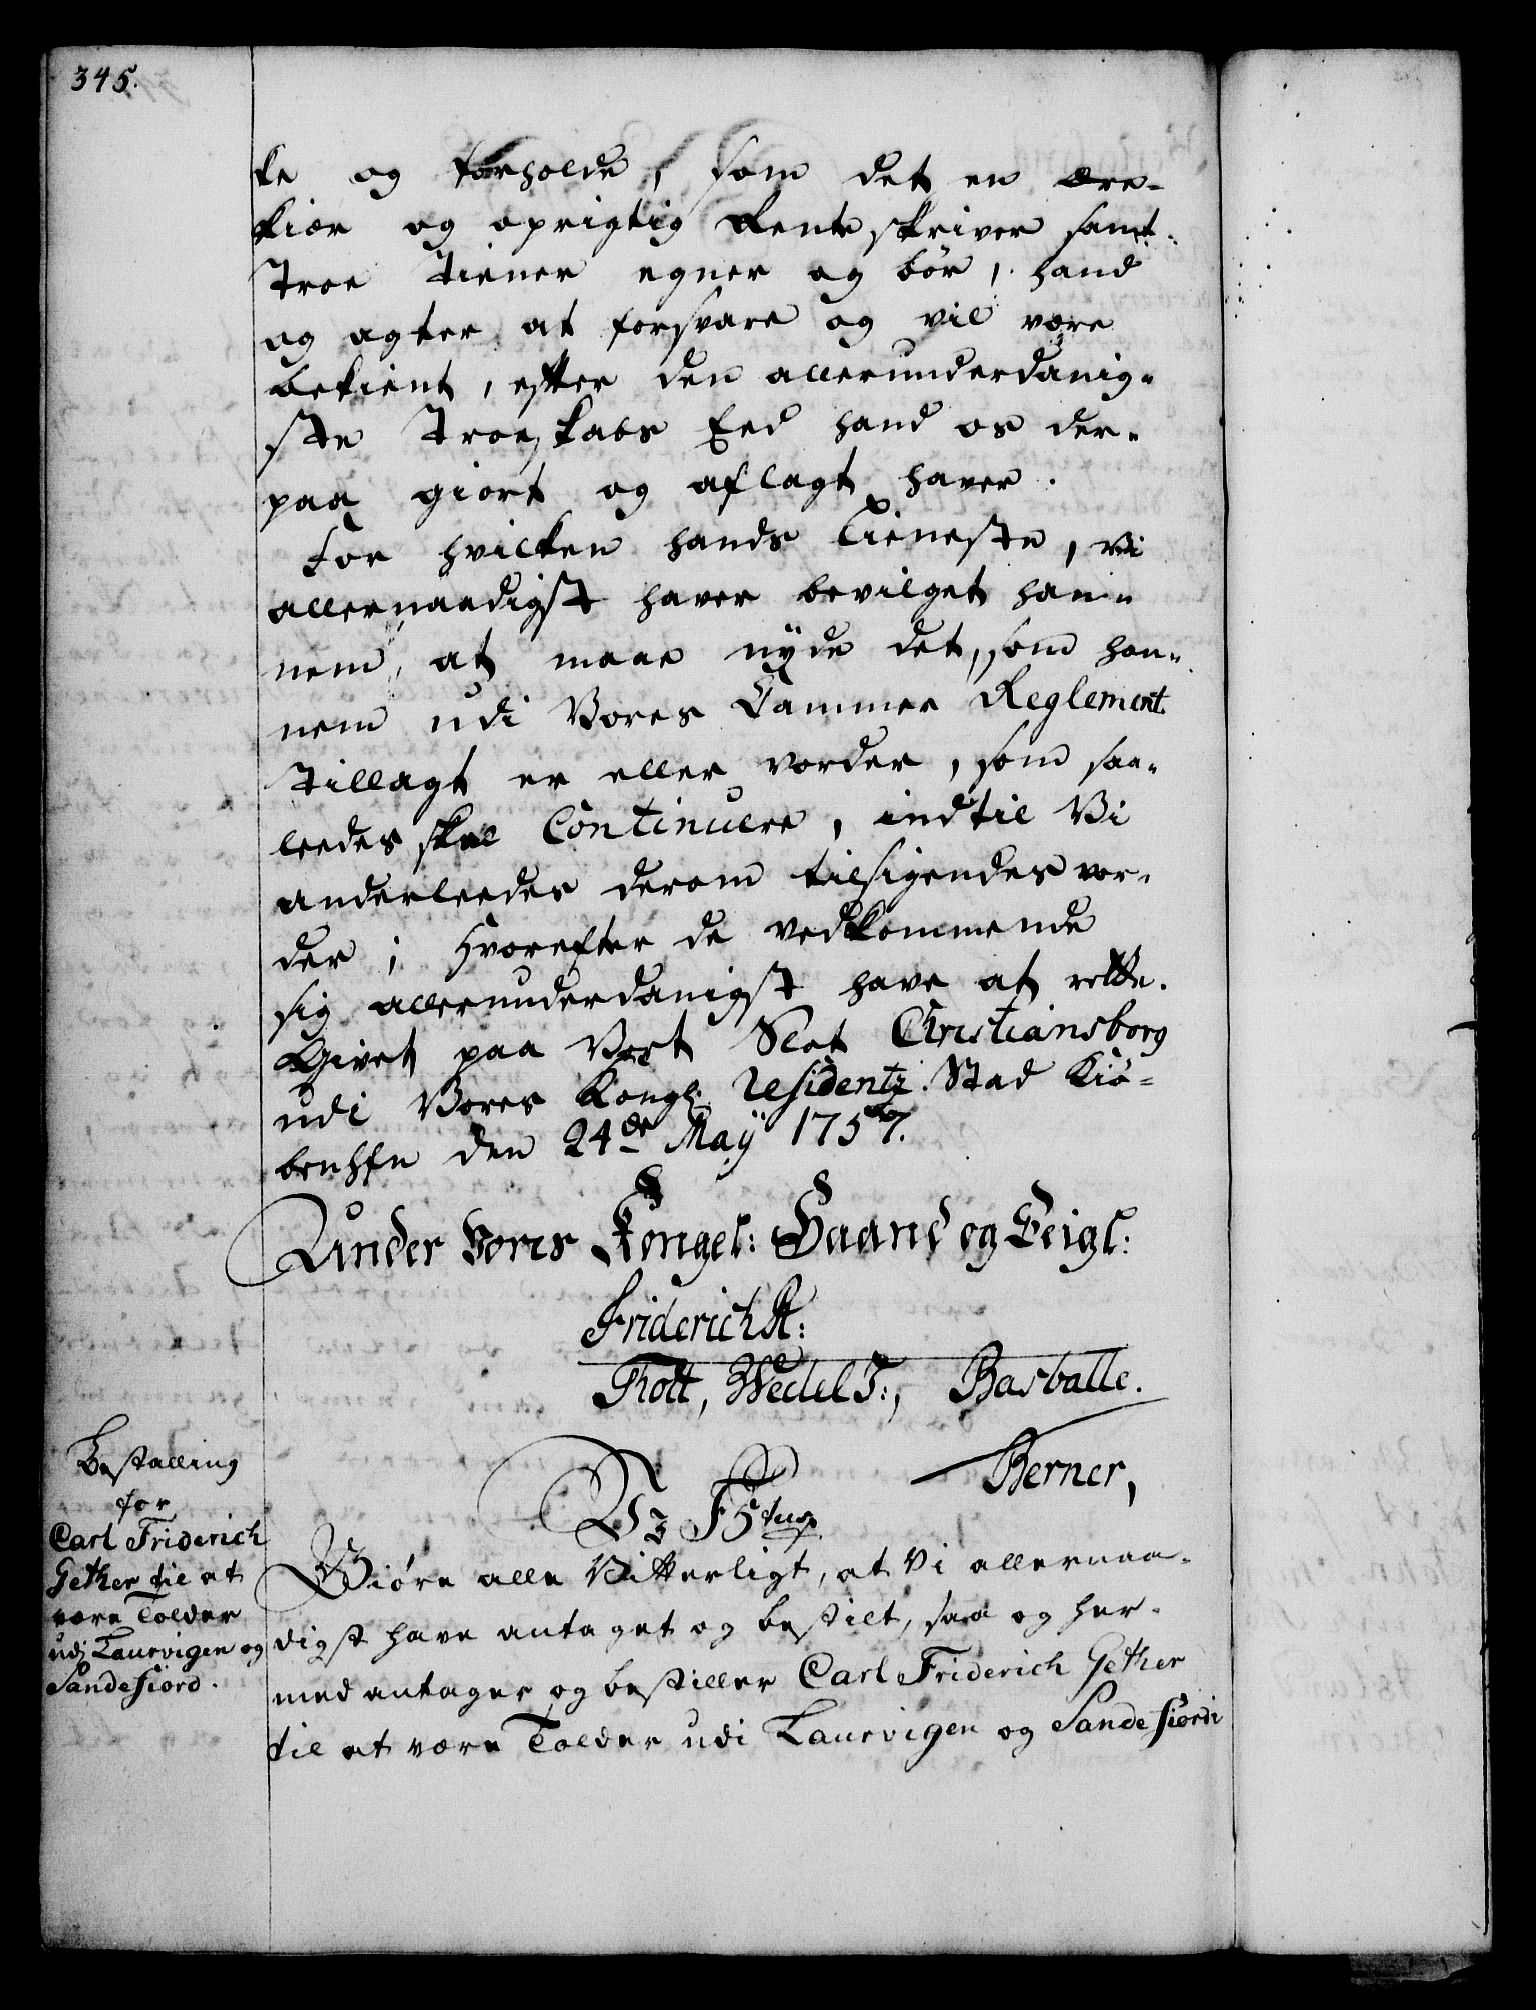 345.
ke og forholde, som det en ære-
kiær og oprigtig Rente skriver samt
Troe Tiener egner og bør, hand
og agter at forsvare og vil være
bekient, efter den allerunderdanig-
ste Troeskabs Eed hand os der-
paa giort og aflagt haver.
For hvilken hands Tieneste, Vi
allernaadigst haver bevilget han-
nem, at maae nyde det, som han-
nem udi Vores Cammer Reglement
tillagt er eller vorder, som saa-
leedes skal Continuere, indtil Vi
anderleedes derom tilsigendes vor-
der; Hvorefter de vedkommende
sig allerunderdanigst have at rette.
Givet paa Vort Slot Christiansborg
udi Vores Kongl: Residentz Stad Kiø-
benhfn den 24de Maÿ 1757.
Under Vores Kongel: Haand og Seigl:
Friderich R:
Thott, Wedel F:, Basballe.
Berner,
Bestalling
for
Carl Friderich
Gether til at
være Tolder
udi Laurvigen og
Sandefiord.
Wi F 5tus
Giøre alle Vitterligt, at Vi allernaa-
digst have antaget og bestilt, saa og her-
med antager og bestiller Carl Friderich Gether
til at være Tolder udi Laurvigen og Sandefiord